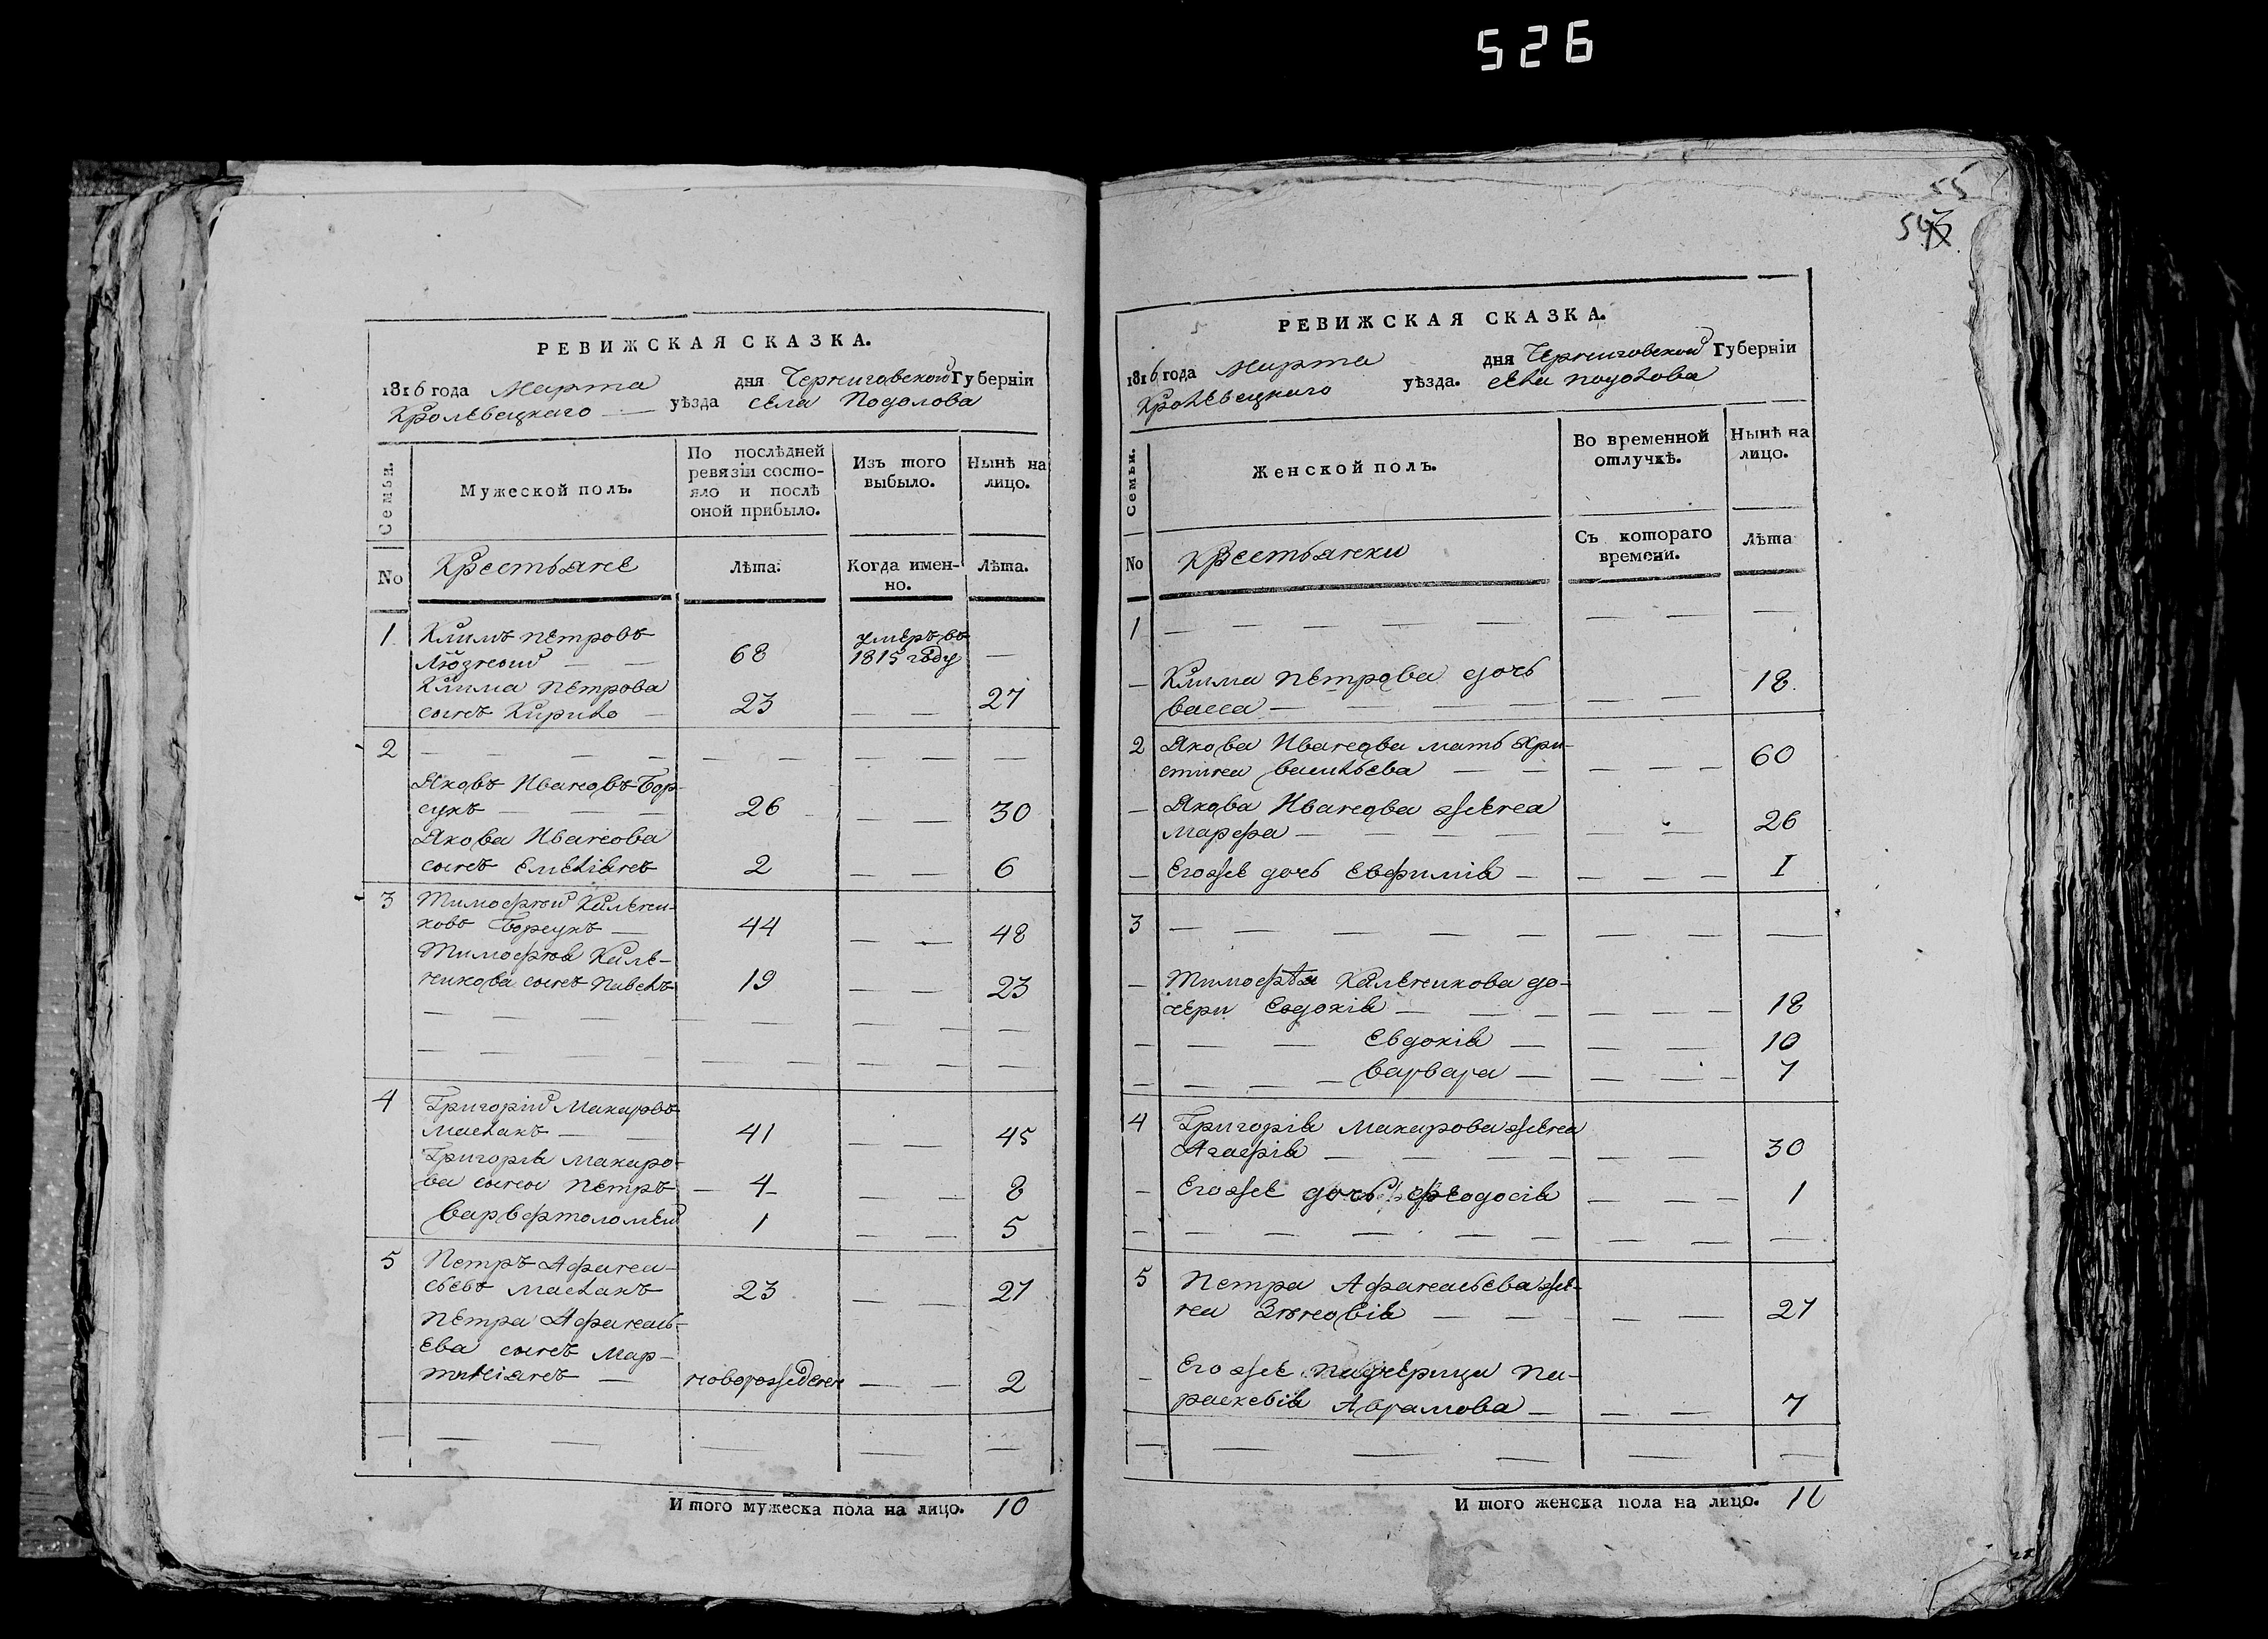 526
55
РЕВИЖСКАЯ СКАЗКА.
1816 года Марта дня Черниговской Губерніи
Кролевецкаго уѣзда села Подолова
Семьи.
Мужеской полъ.
По послѣдней ревизіи состояло и послѣ оной прибыло.
Изъ того выбыло.
Нынѣ на лицо.
No
Крестьяне
Лѣта.
Когда именно.
Лѣта.
1 Климъ Петровъ умеръ въ
68 1815 году —
Клима Петрова
сынъ Кирило — 23 — — 27
2 — — — — — — — — —
Яковъ Ивановъ Бор-
сукъ — — — 26 — — 30
Якова Иванова
сынъ Емеліянъ 2 — — 6
3 Тимофѣй Калени-
ковъ Борсукъ — 44 — — 48
Тимофѣя Кале-
никова сынъ Павелъ 19 — — 23
— — — — — — — — —
— — — — — — — — —
4 Григорій Макаровъ
Маслакъ — — 41 — — 45
Григорія Макаро-
ва сыны Петръ — 4 — — 8
Варфоломей 1 — — 5
5 Петръ Афана-
сьевъ Маслакъ 23 — — 27
Петра Афанась-
ева сынъ Мар-
тиніянъ — новорожденъ — — 2
— — — — — —
И того мужеска пола на лицо. 10
РЕВИЖСКАЯ СКАЗКА.
1816 года Марта дня Черниговской Губерніи
Кролевецкаго уѣзда. села Подолова
Семьи.
Женской полъ.
Во временной отлучкѣ.
Нынѣ на лицо.
No
Крестьянки
Съ котораго времени.
Лѣта
1 — — — — — — — —
— Клима Петрова дочь
Васса — — — — — — 18
2 Якова Иванова мать Хри-
стина Васильева — — — — — 60
— Якова Иванова жена
Марфа — — — — — 26
— Егоже дочь Евфимія — — — — 1
3 — — — — — — — —
— Тимофѣя Каленикова до-
чери Евдокія — — — — — — 18
— — — Евдокія — — — 10
— — — — Варвара — — — — 7
4 Григорія Макарова жена
Агафія — — — — — — 30
— Егоже дочь Феодосія — — — 1
— — — — — — — — — —
5 Петра Афанасьева же-
на Зѣновія — — — — — 27
— Егоже падчерица Па-
раскевія Аврамова — — — 7
— — — — — —
И того женска пола на лицо. 11